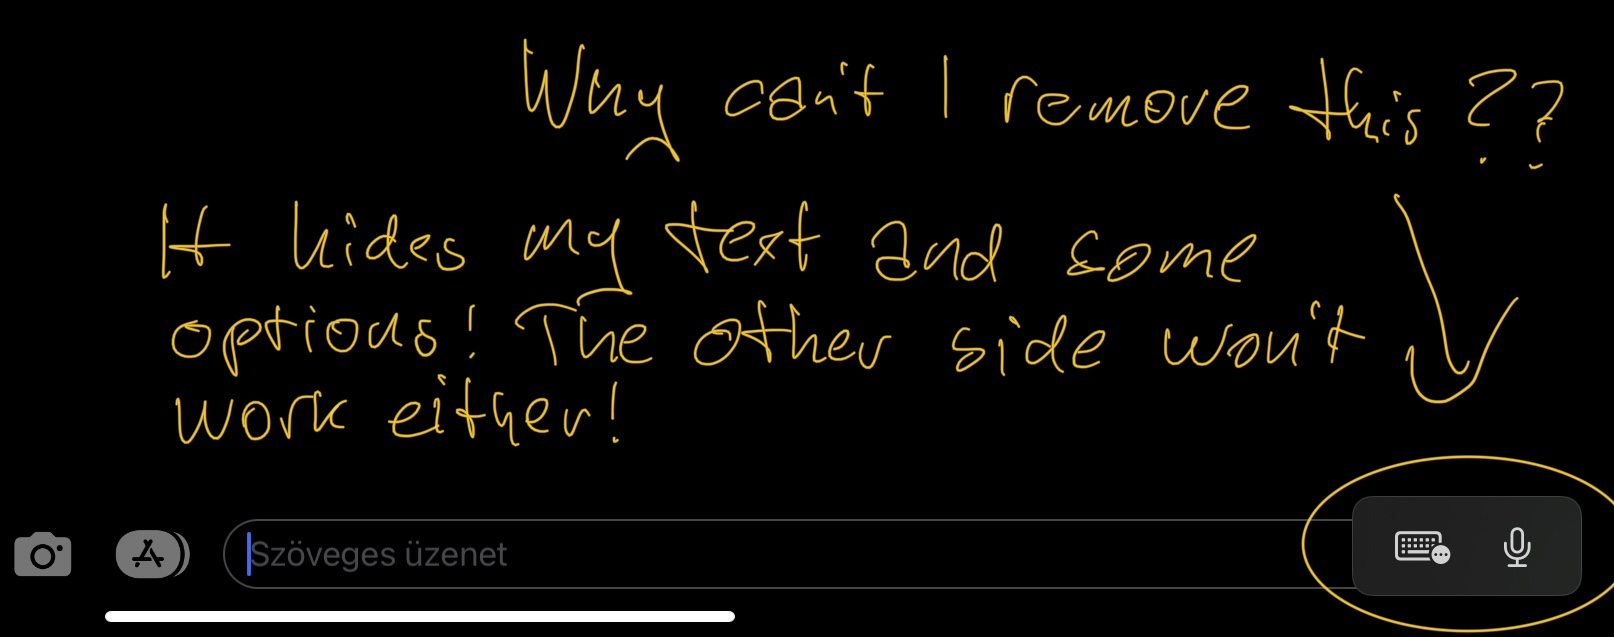 Why can't I remove this??
It hides my text and some
options! The other side won't
work either!
Szöveges üzenet